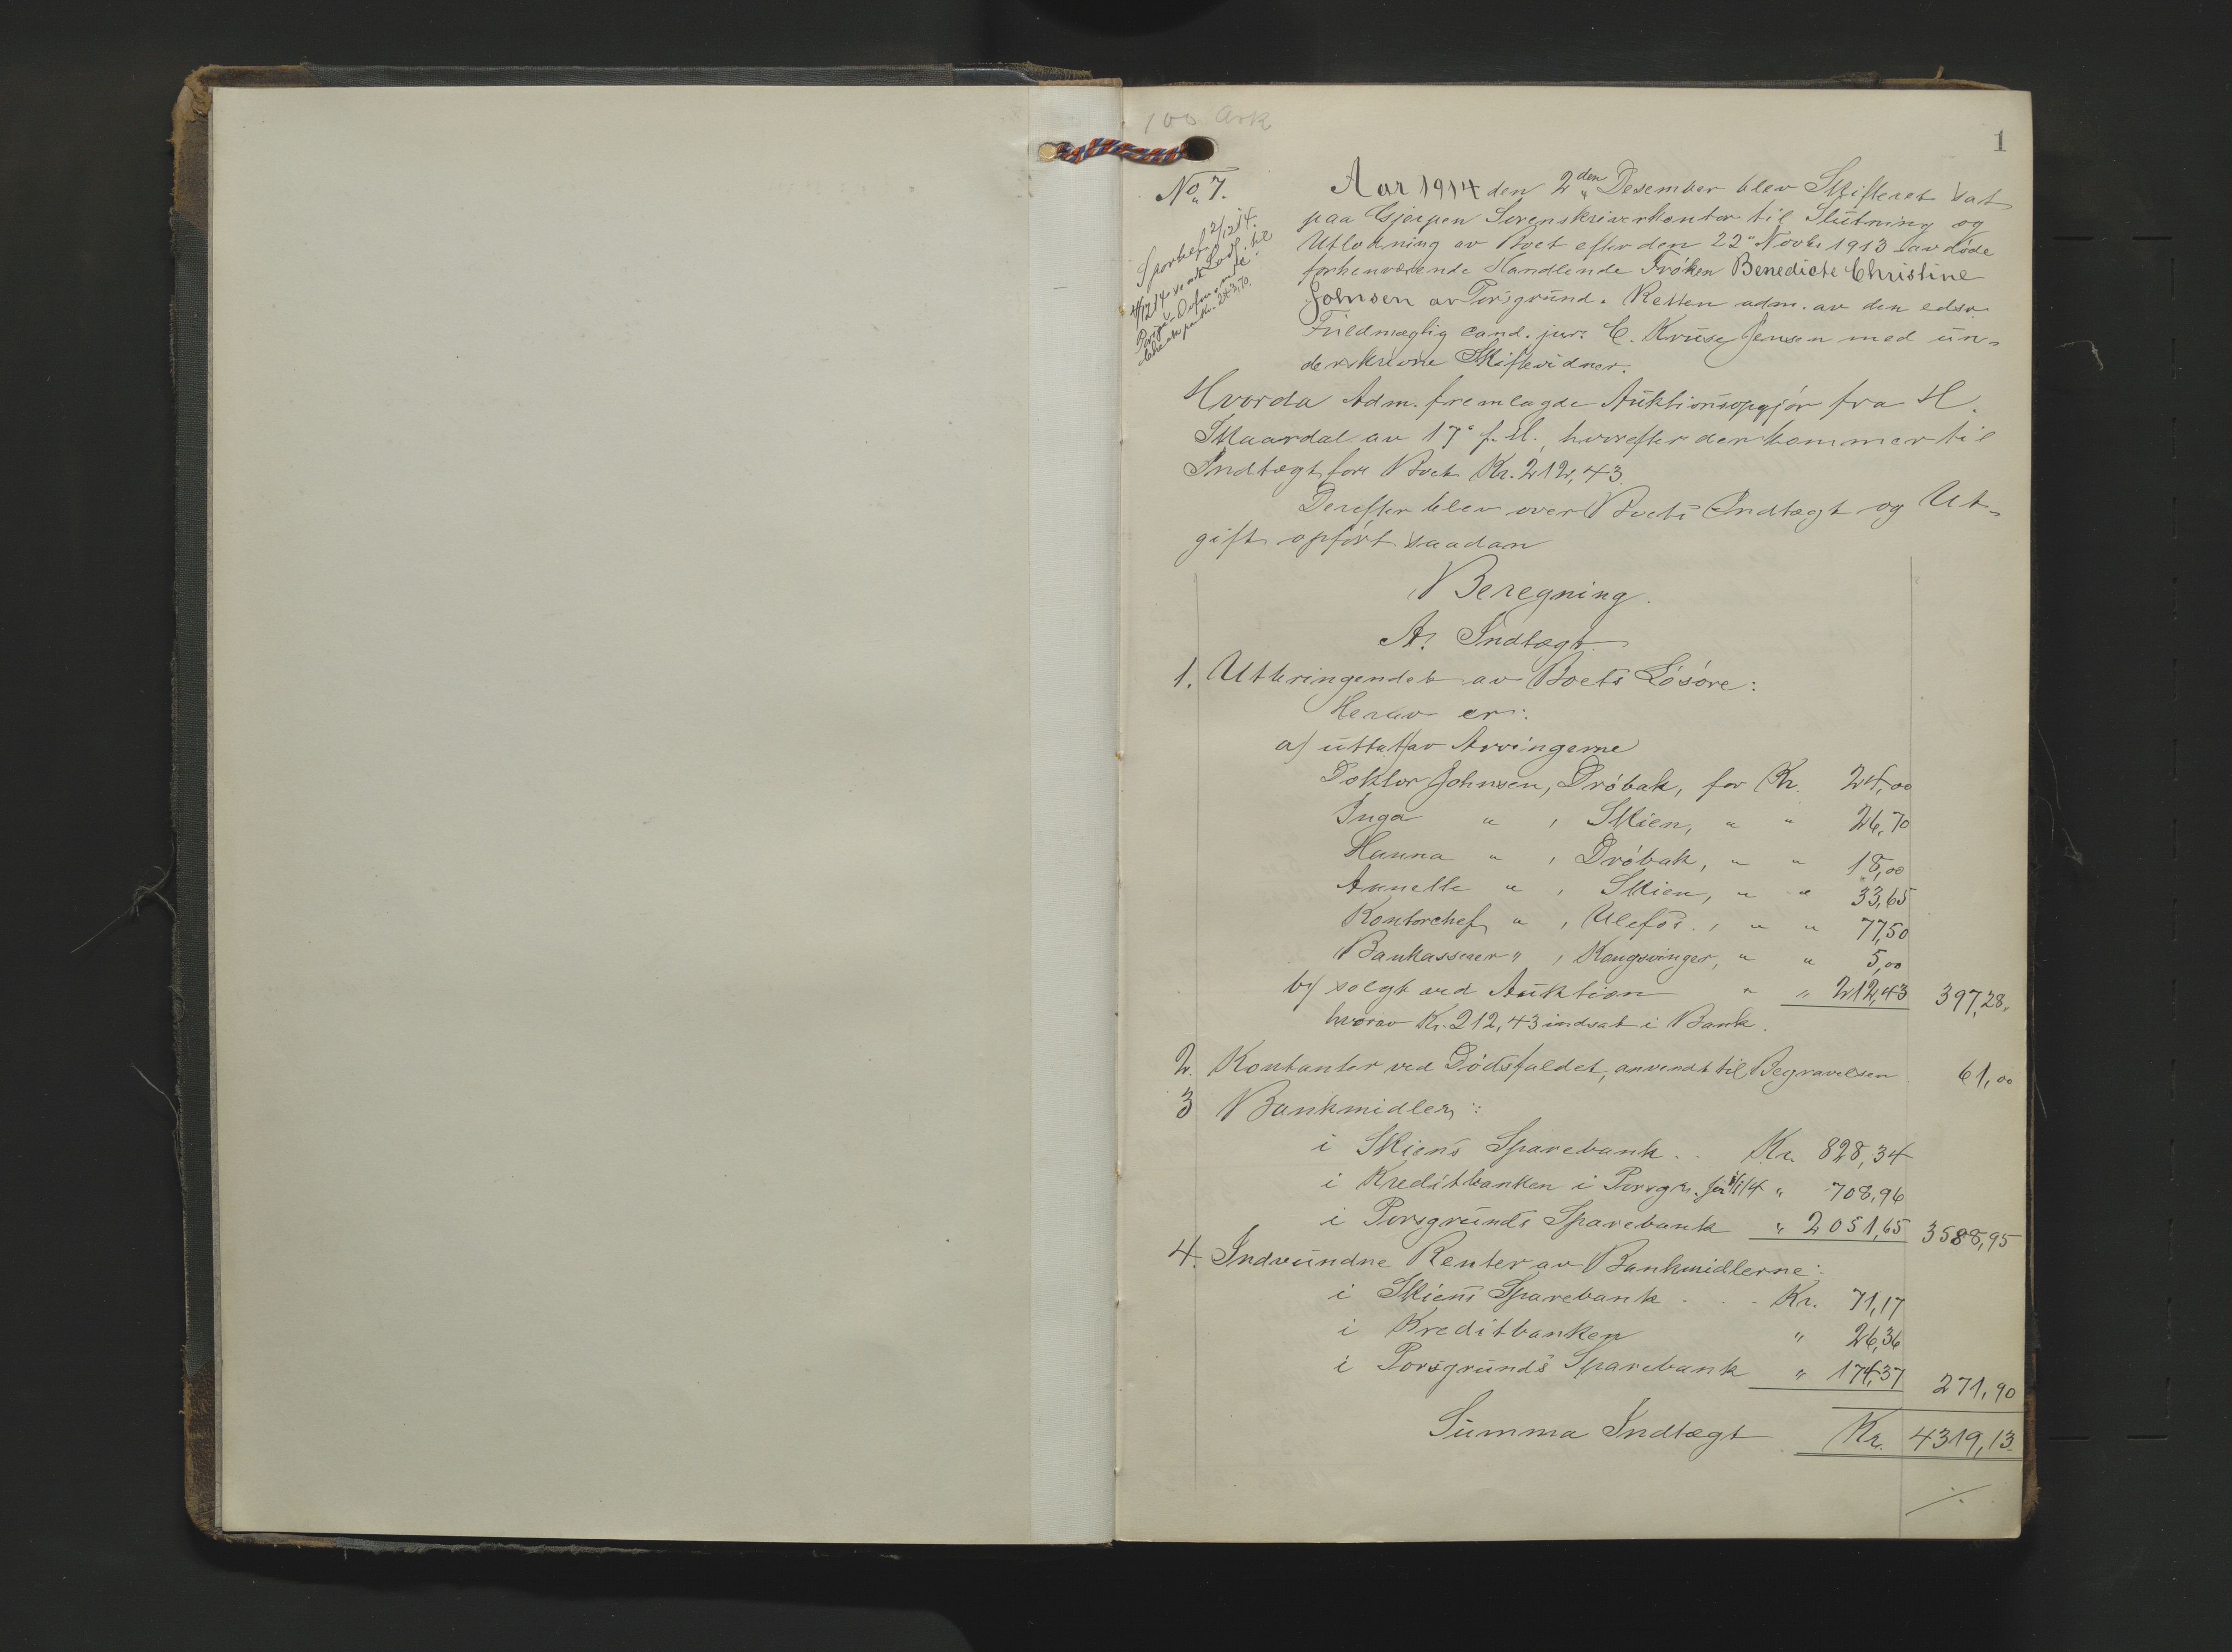 100 Ark
1
No 7.
Aar 1914 den 2den Desember blev Skifteret sat
paa Gjerpen Sorenskriverkontor til Slutning og
Utlodning av Boet efter den 22" Novbr 1913 avdøde
forhenværende Handlende Frøken Benedicte Christine
Johnsen av Porsgrund. Retten adm. av den edsv.
Fuldmægtig cand. jur. C. Kruse Jensen med un-
derskrevne Skiftevidner.
2/12 14.
4/12 14
243,70.
Hvorda Adm. fremlagde Auktionsopgjør fra H.
Skaardal av 17' f. M., hvorefter der kommer til
Indtægt for Boet Kr. 212,43.
Derefter blev over Boets Indtægt og Ut-
gift opført saadan
Beregning.
A. Indtægt
1. Utbringendet av Boets Løsøre:
Herav er:
a) uttat av Arvingerne
Doktor Johnsen, Drøbak, for Kr. 24,00
Inga " , Skien, " " 26,70
Hanna " , Drøbak, " " 18,00
Annette " , Skien, " " 33,65
Kontorchef " , Ulefos., " " 77,50
Bankasserer " , Kongsvinger, " " 5,00
b) solgt ved Auktion " " 212,43 397,28,
hvorav Kr. 212,43 indsat i Bank.
2. Kontanter ved Dødsfaldet, anvendt til Begravelsen 61,00
3 Bankmidler:
i Skiens Sparebank . . Kr. 828,34
i Kreditbanken i Porsgr. 1/1 14 " 708,96
i Porsgrunds Sparebank " 2051,65 3588,95
4. Indvundne Renter av Bankmidlerne:
i Skiens Sparebank . . . Kr. 71,17
i Kreditbanken " 26,36
i Porsgrunds Sparebank " 174,37 271,90
Summa Indtægt Kr. 4319,13